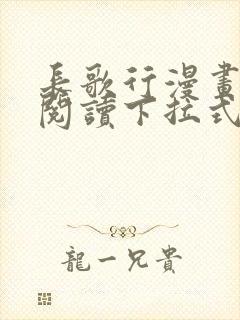 長歌行漫畫
閱讀下拉式
龍一兄貴